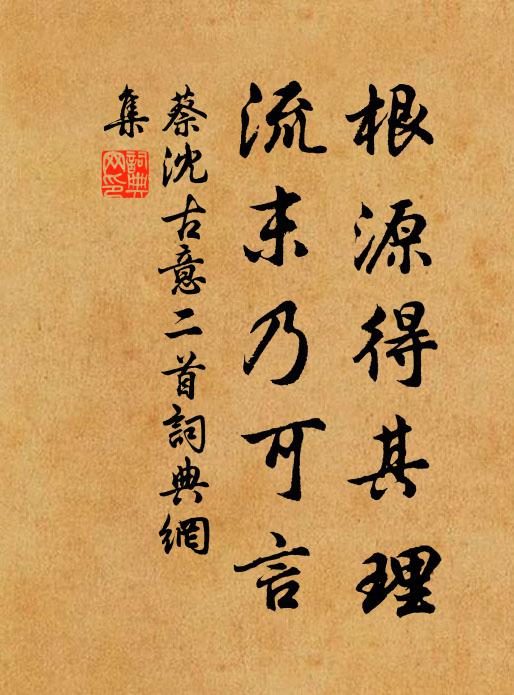 根源得其理
流末乃可言
蔡沈古意二首詞典網
集
詞典
网印